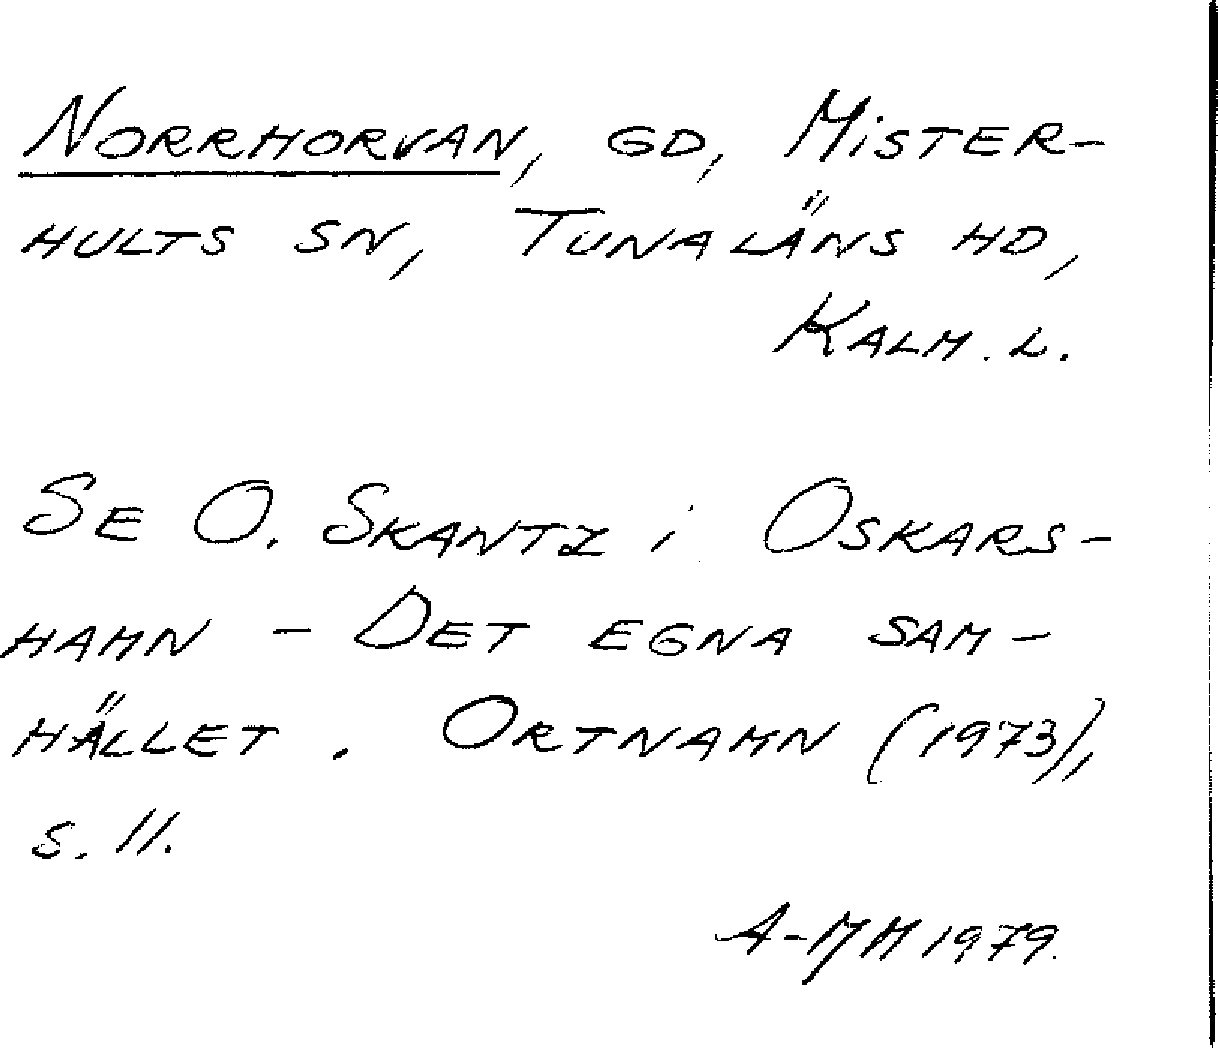 Norrhorvan, gd, Mister-
hults sn, Tunaläns hd,
Kalm. l.
Se O. Skantz i Oskars-
hamn - Det egna sam-
hället. Ortnamn (1973),
s. 11.
A-MH 1979.